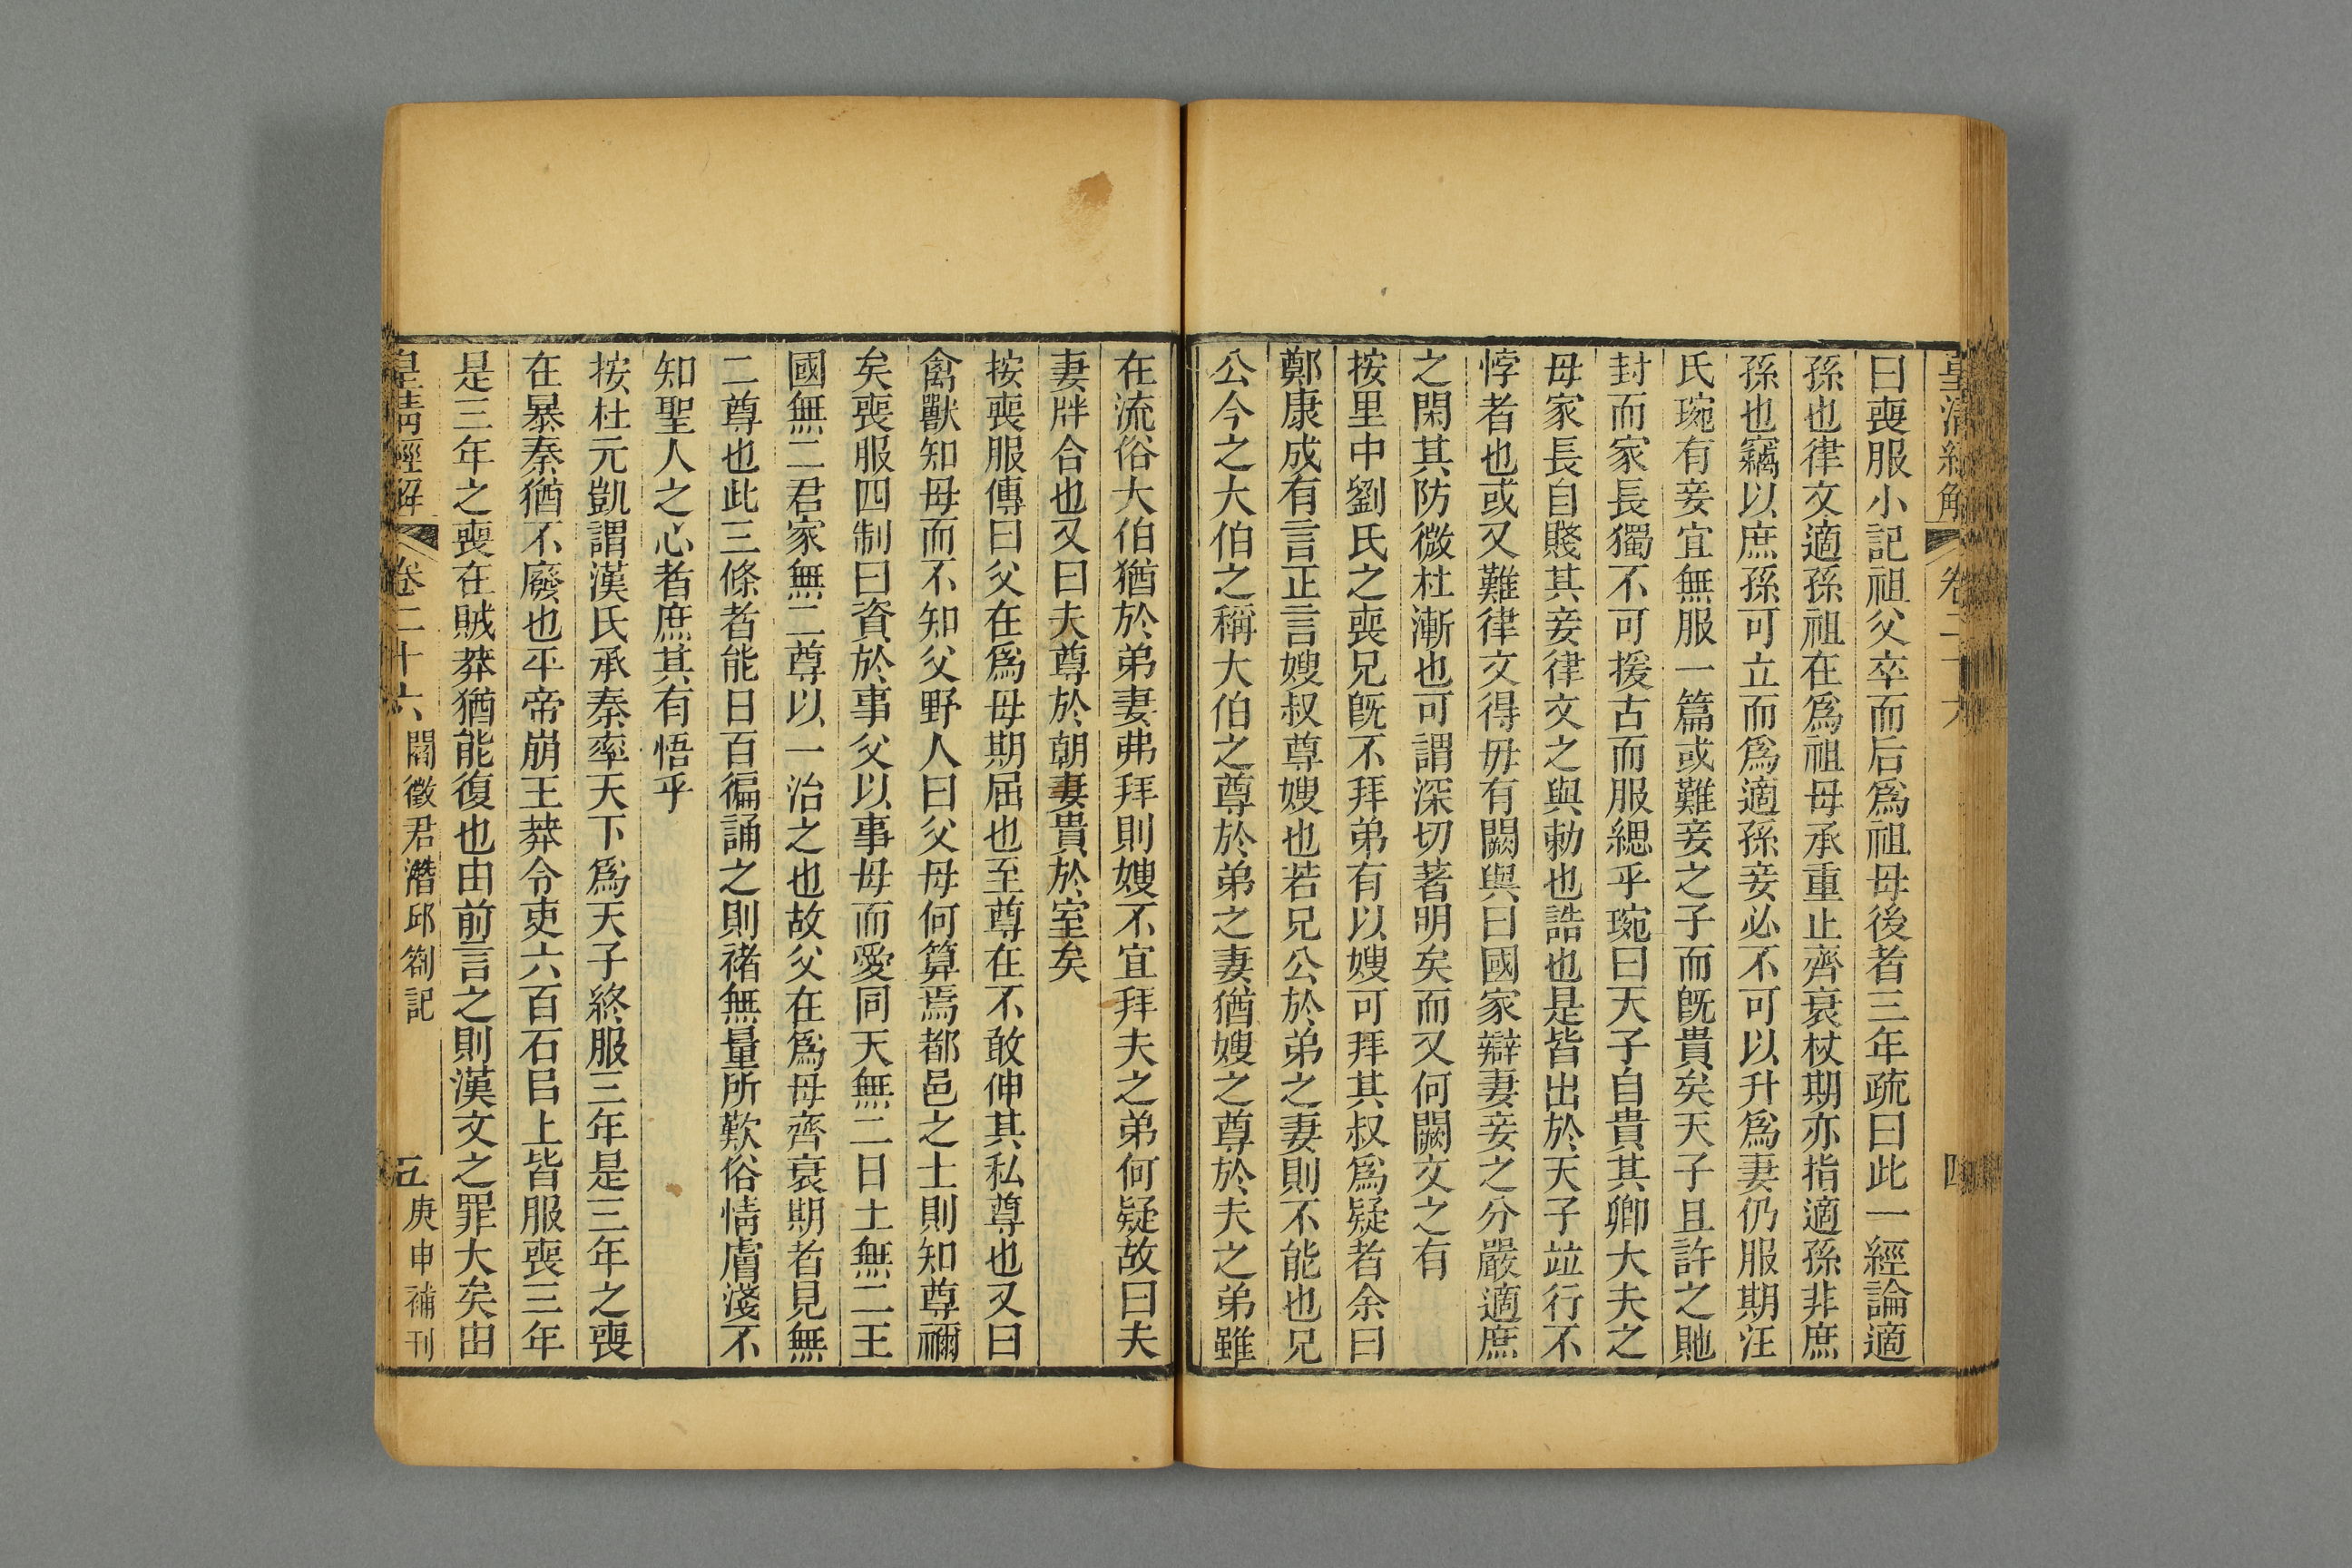 皇清經解 卷二十六 四
曰喪服小記祖父卒而后爲祖母後者三年疏曰此一經論適
孫也律文適孫祖在爲祖母承重止齊衰杖期亦指適孫非庶
孫也竊以庶孫可立而爲適孫妾必不可以升爲妻仍服期汪
氏琬有妾宜無服一篇或難妾之子而旣貴矣天子且許之貤
封而家長獨不可援古而服緦乎琬曰天子自貴其卿大夫之
母家長自賤其妾律文之與勅也誥也是皆出於天子竝行不
悖者也或又難律文得毋有闕與曰國家辯妻妾之分嚴適庶
之閑其防微杜漸也可謂深切著明矣而又何闕文之有
按里中劉氏之喪兄旣不拜弟有以嫂可拜其叔爲疑者余曰
鄭康成有言正言嫂叔尊嫂也若兄公於弟之妻則不能也兄
公今之大伯之稱大伯之尊於弟之妻猶嫂之尊於夫之弟雖
在流俗大伯猶於弟妻弗拜則嫂不宜拜夫之弟何疑故曰夫
妻牉合也又曰夫尊於朝妻貴於室矣
按喪服傳曰父在爲母期屈也至尊在不敢伸其私尊也又曰
禽獸知母而不知父野人曰父母何算焉都邑之士則知尊禰
矣喪服四制曰資於事父以事母而愛同天無二日土無二王
國無二君家無二尊以一治之也故父在爲母齊衰期者見無
二尊也此三條者能日百徧誦之則褚無量所歎俗情膚淺不
知聖人之心者庶其有悟乎
按杜元凱謂漢氏承秦率天下爲天子終服三年是三年之喪
在暴秦猶不廢也平帝崩王莽令吏六百石㠯上皆服喪三年
是三年之喪在賊莽猶能復也由前言之則漢文之罪大矣由
皇清經解 卷二十六 閻徵君潛邱劄記 五 庚申補刊